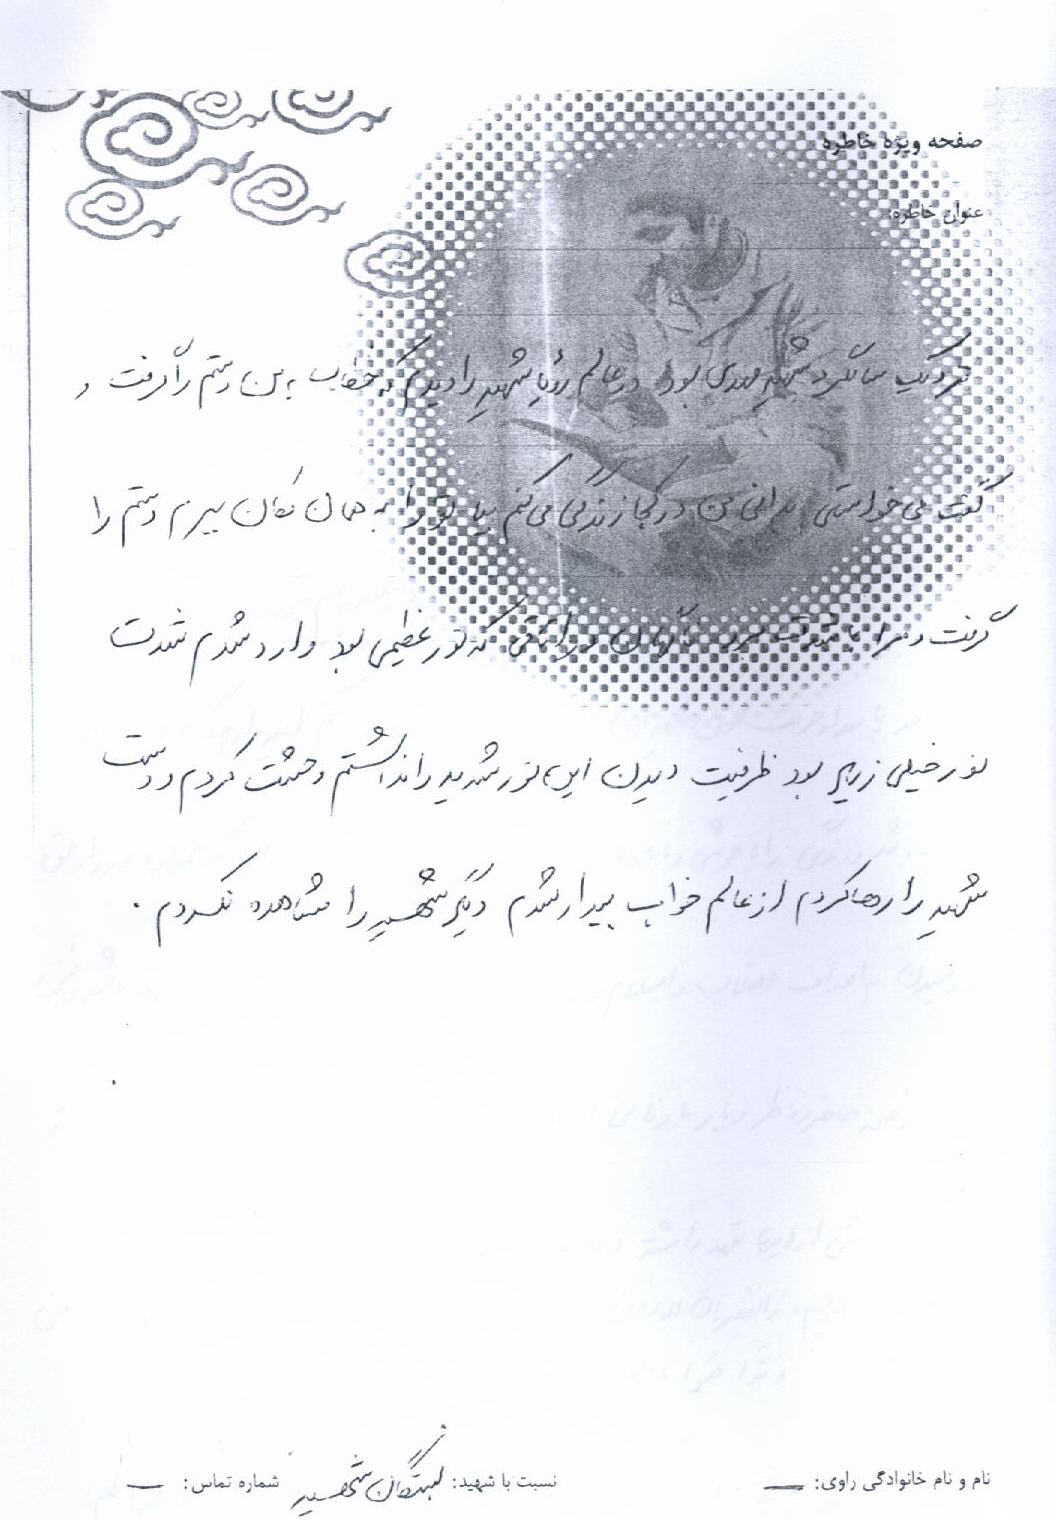 صفحه ویژه خاطره
عنوان خاطره:
نزدیک سالگرد شهید مهدی بود در عالم رؤیا شهید را دیدم که خطاب به من دستم را گرفت و
گفت می‌خواستی بدانی من در کجا زندگی می‌کنم بیا تو را به همان مکان ببرم دستم را
گرفت و مرا با خودش برد در اتاقی که نور عظیمی بود وارد شدم شدت
نور خیلی زیاد بود ظرفیت دیدن این نور شدید را نداشتم وحشت کردم و دست
شهید را رها کردم از عالم خواب بیدار شدم دیگر شهید را مشاهده نکردم .
نام و نام خانوادگی راوی: —
نسبت با شهید: بستگان شهید
شماره تماس: —